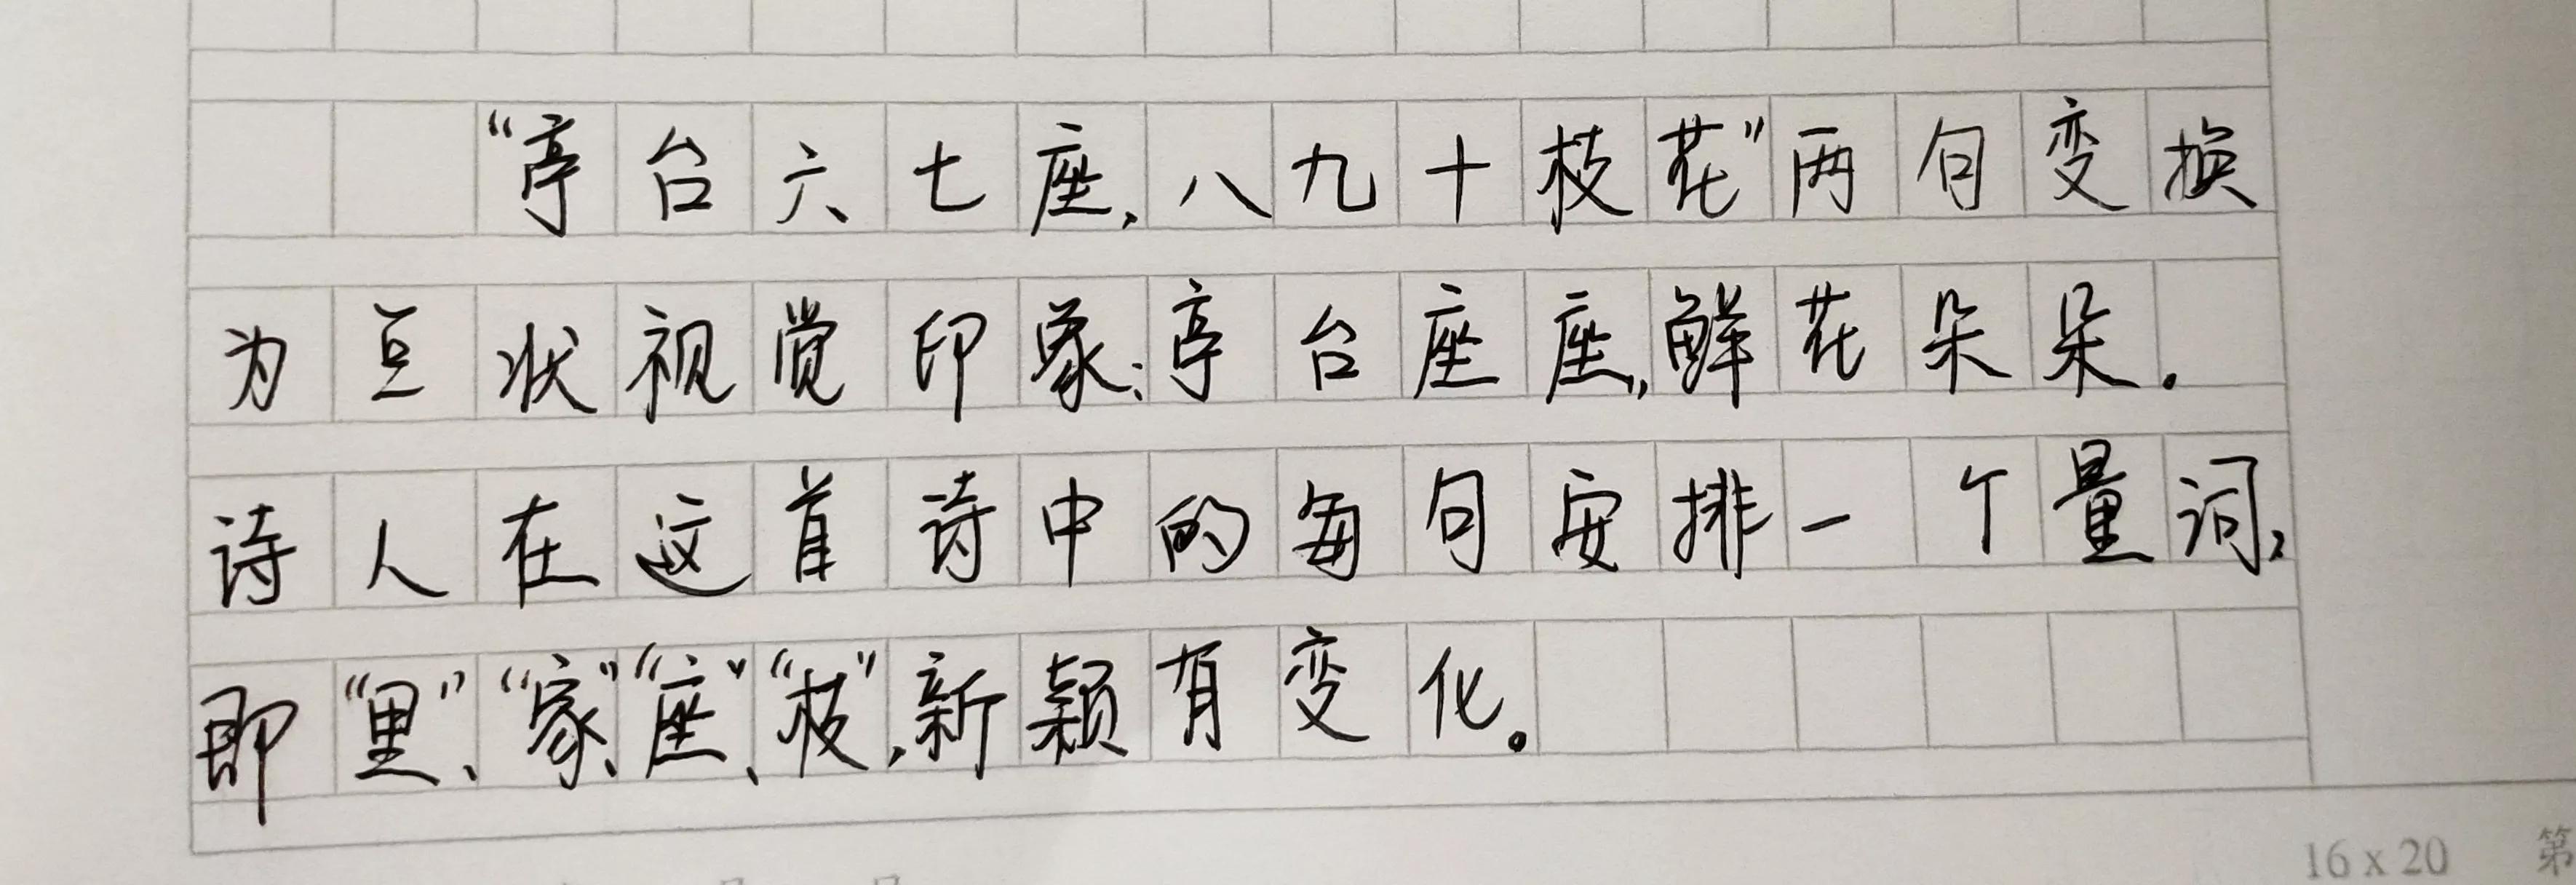 “亭台六七座,八九十枝花”两句变换
为豆状视觉印象:亭台座座,鲜花朵朵.
诗人在这首诗中的每句安排一个量词,
即“里”、“家”、“座”、“枝”,新颖有变化。
16 x 20 第